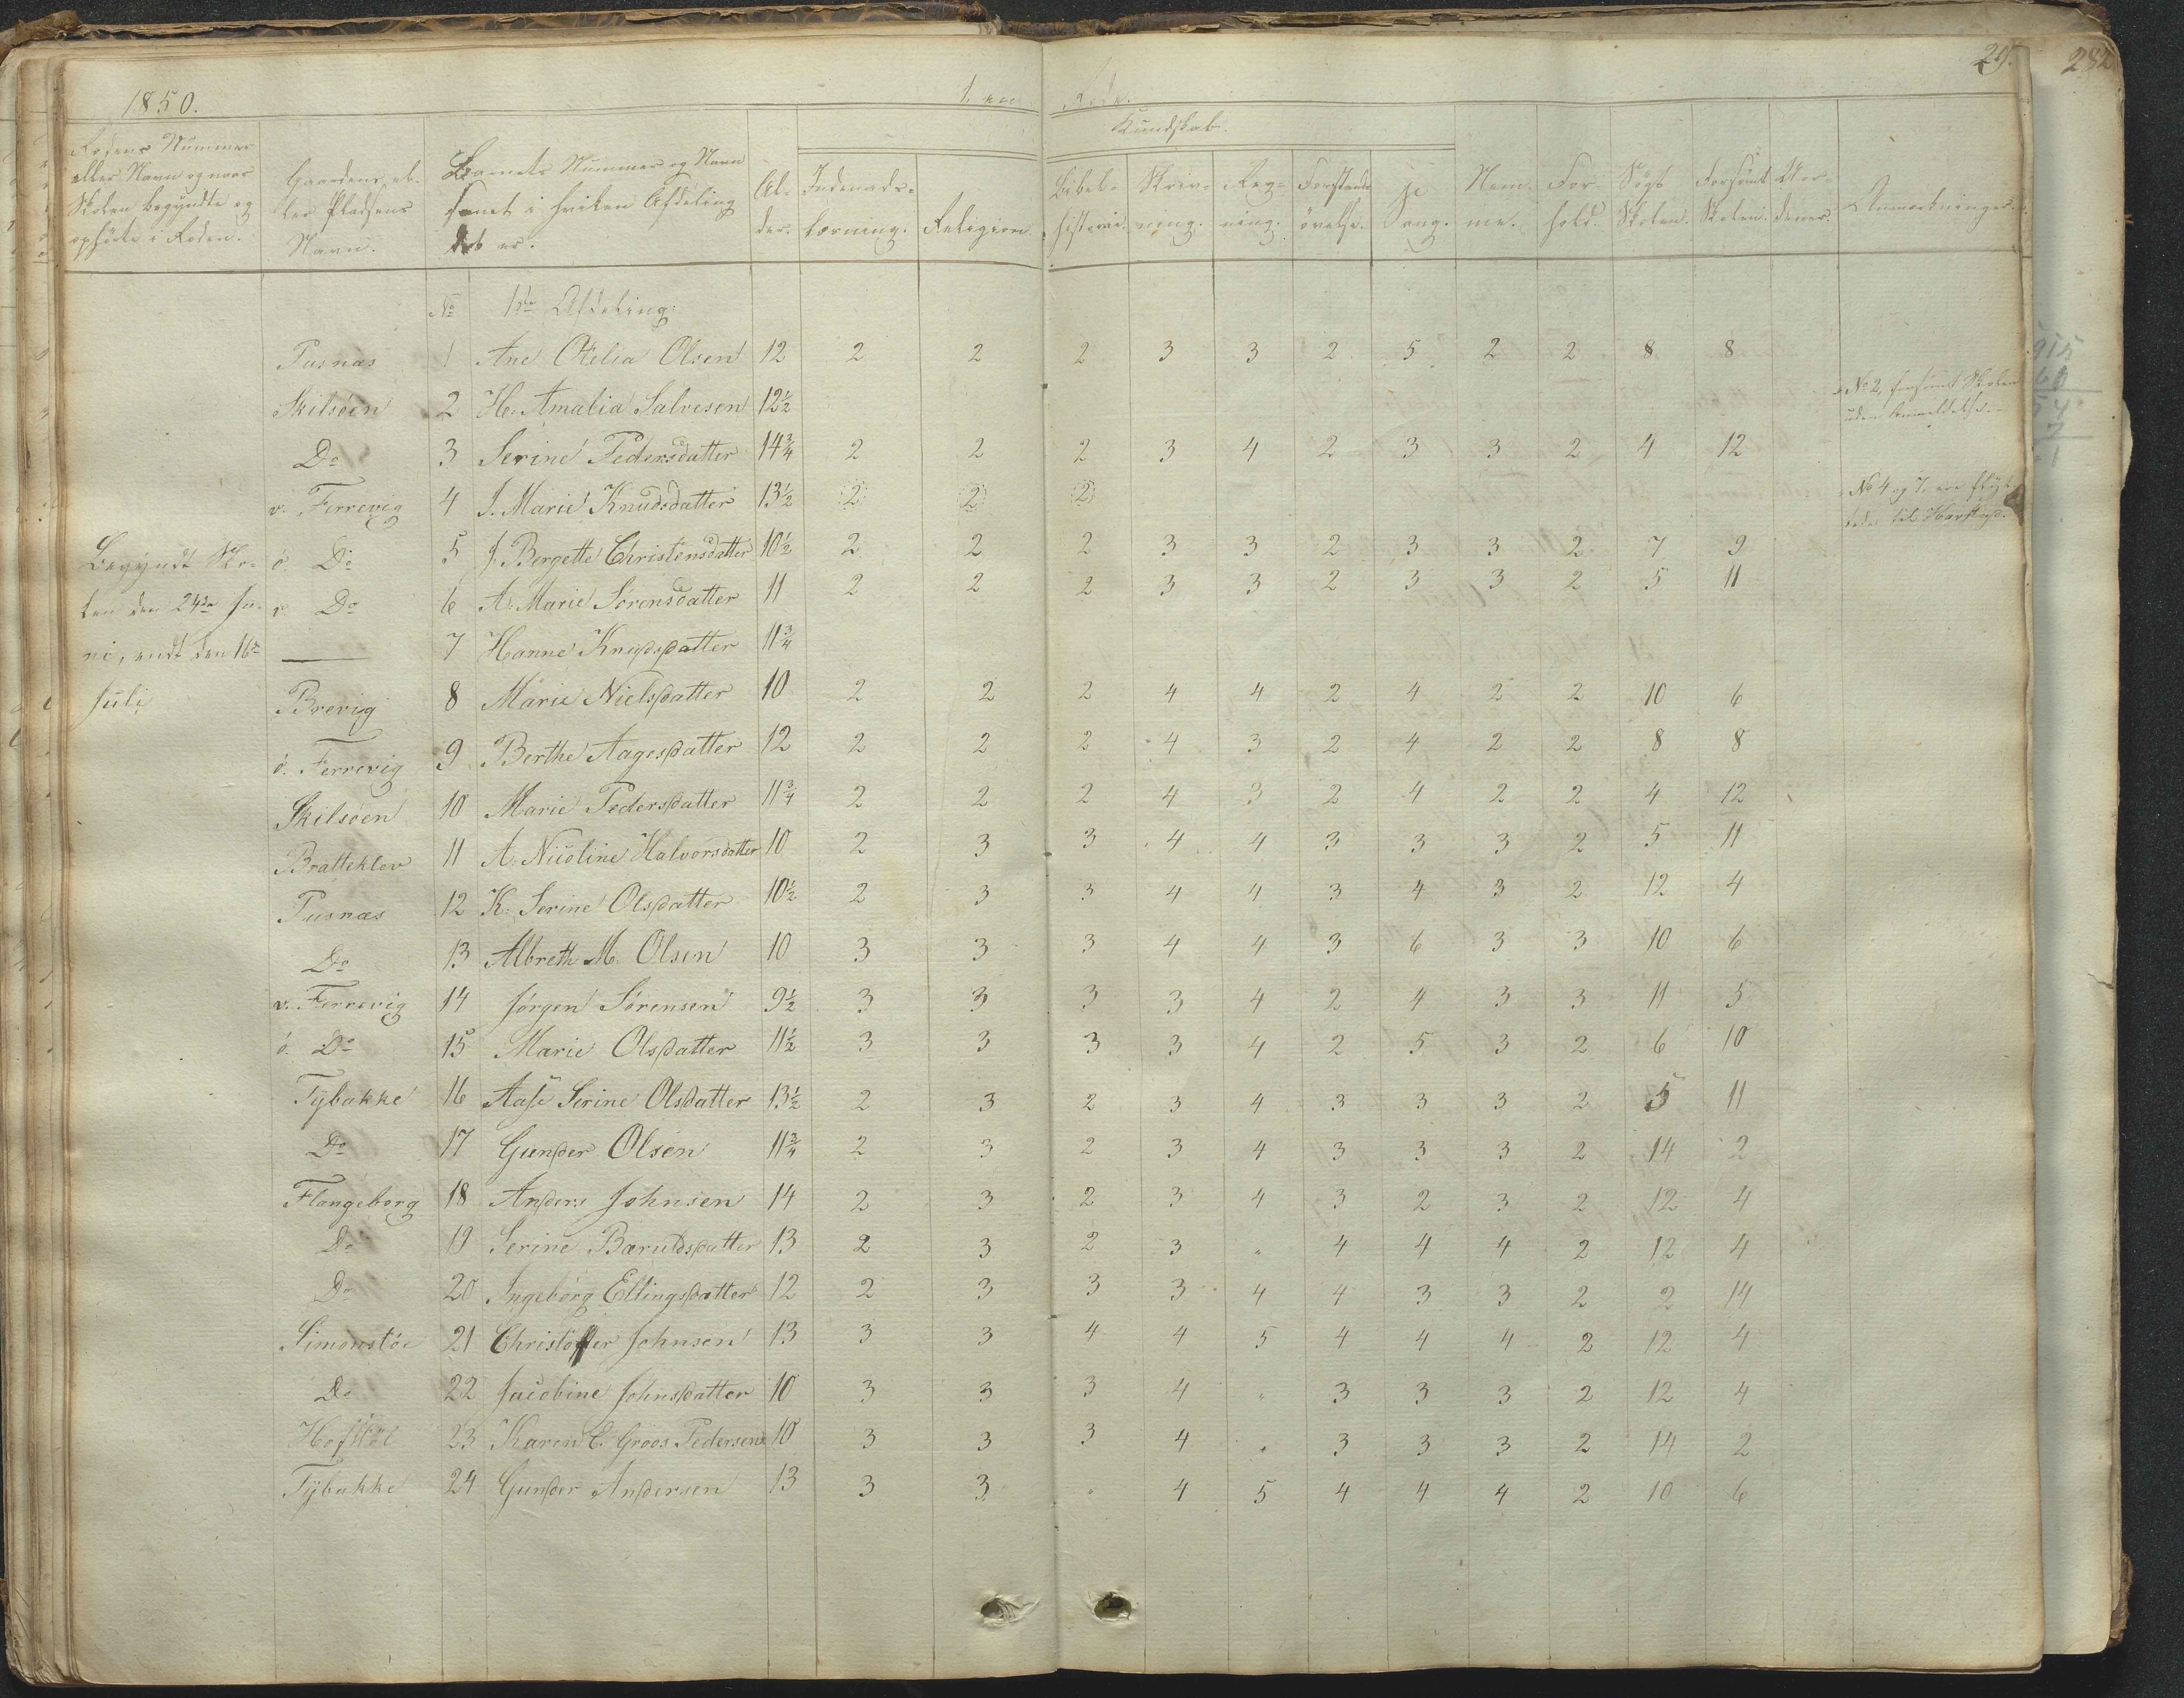 1850. 1. en Rode. 29. 282
Rodens Nummer eller Navn og naar Skolen begyndte og ophörte i Roden.
Gaardens eller Pladsens Navn.
Barnets Nummer og Navn samt i hvilken Afdeling det er.
Alder.
Kundskab.
Indenadslæsning.
Religion
Bibelhistorie.
Skrivning.
Regning.
Forstandsövelse.
Sang.
Nemme.
Forhold.
Sögt Skolen.
Forsömt Skolen.
Anmærkninger.
No 1ste Afdeling:
Pusnæs 1 Ane Otelia Olsen 12 2 2 2 3 3 2 5 2 2 8 8
Skilsöen 2 H. Amalia Salvesen 12½ No 2, forsömt Skolen uden Anmeldelse.
Do 3 Serine Pedersdatter 14¾ 2 2 2 3 4 2 3 3 2 4 12
v. Færevig 4 J. Marie Knudsdatter 13½ 2 2 2 No 4 og 7, ere flyttede til
ö. Do 5 J. Bergette Christensdatter 10½ 2 2 2 3 3 2 3 3 2 7 9
Begyndt Skolen den 24de Juni, endt den 16de Juli
v. Do 6 A. Marie Sörensdatter 11 2 2 2 3 3 2 3 3 2 5 11
— 7 Hanne Knudsdatter 11¾
Brevig 8 Marie Nielsdatter 10 2 2 2 4 4 2 4 2 2 10 6
ö. Færevig 9 Berthe Aagesdatter 12 2 2 2 4 3 2 4 2 2 8 8
Skilsöen 10 Marie Pedersdatter 11¾ 2 2 2 4 3 2 4 2 2 4 12
Bratteklev 11 A. Nicoline Halvorsdatter 10 2 3 3 4 4 3 3 3 2 5 11
Pusnæs 12 K. Serine Olsdatter 10½ 2 3 3 4 4 3 4 3 2 12 4
Do 13 Albreth M. Olsen 10 3 3 3 4 4 3 6 3 3 10 6
v. Færevig 14 Jörgen Sörensen 9½ 3 3 3 3 4 2 4 3 3 11 5
ö. Do 15 Marie Olsdatter 11½ 3 3 3 3 4 2 5 3 2 6 10
Tÿbakke 16 Aase Serine Olsdatter 13½ 2 3 2 3 4 3 3 3 2 5 11
Do 17 Gunder Olsen 11¾ 2 3 2 3 4 3 3 3 2 14 2
Flangeborg 18 Anders Johnsen 14 2 3 2 3 4 3 2 3 2 12 4
Do 19 Serine Baruldsdatter 13 2 3 2 3 " 4 4 4 2 12 4
Do 20 Ingebörg Ellingsdatter 12 2 3 3 3 4 4 3 3 2 2 14
Simonstöe 21 Christoffer Johnsen 13 3 3 4 4 5 4 4 4 2 12 4
Do 22 Jacobine Johnsdatter 10 3 3 3 4 " 3 3 3 2 12 4
23 Karen E. Groos Pedersen 10 3 3 3 4 " 3 3 3 2 14 2
Tÿbakke 24 Gunder Andersen 13 3 3 " 4 5 4 4 4 2 10 6